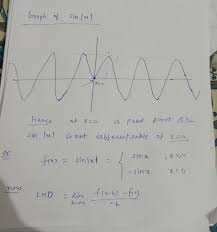 Graph of sin|x|
x=0
Hence at x=0 is peak point so
sin |x| is not differentiable at x=0
or
f(x) = sin|x| = { sinx , x>0
-sinx x<0
now
LHD = lim h→0 f(0-h) - f(0) / -h